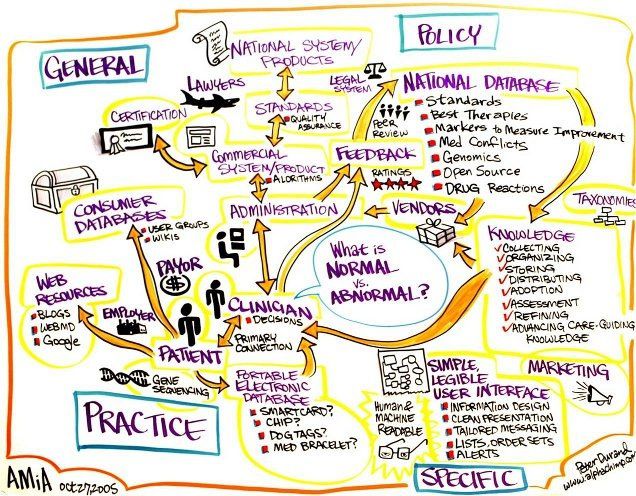 GENERAL
NATIONAL SYSTEM/
PRODUCTS
POLICY
LAWYERS
LEGAL
SYSTEM
NATIONAL DATABASE
Standards
Best Therapies
Markers to Measure Improvement
Med Conflicts
Genomics
Open Source
DRUG REACTIONS
CERTIFICATION
STANDARDS
QUALITY
ASSURANCE
PEER
REVIEW
COMMERCIAL
SYSTEM/PRODUCT
ALORITHMS
FEEDBACK
RATINGS
CONSUMER
DATABASES
USER GROUPS
WIKIS
ADMINISTRATION
VENDORS
TAXONOMIES
KNOWLEDGE
COLLECTING
ORGANIZING
STORING
DISTRIBUTING
ADOPTION
ASSESSMENT
REFINING
ADVANCING CARE-GUIDING
KNOWLEDGE
What is
NORMAL
vs.
ABNORMAL?
WEB
RESOURCES
BLOGS
WEBMD
Google
PAYOR
$
EMPLOYER
CLINICIAN
DECISIONS
PATIENT
PRIMARY
CONNECTION
GENE
SEQUENCING
PORTABLE
ELECTRONIC
DATABASE
SMARTCARD?
CHIP?
DOGTAGS?
MED BRACELET?
HUMAN &
MACHINE
READABLE
SIMPLE,
LEGIBLE
USER INTERFACE
INFORMATION DESIGN
CLEAN PRESENTATION
TAILORED MESSAGING
LISTS, ORDER SETS
ALERTS
MARKETING
PRACTICE
SPECIFIC
AMiA Oct 27, 2005
Peter Durand